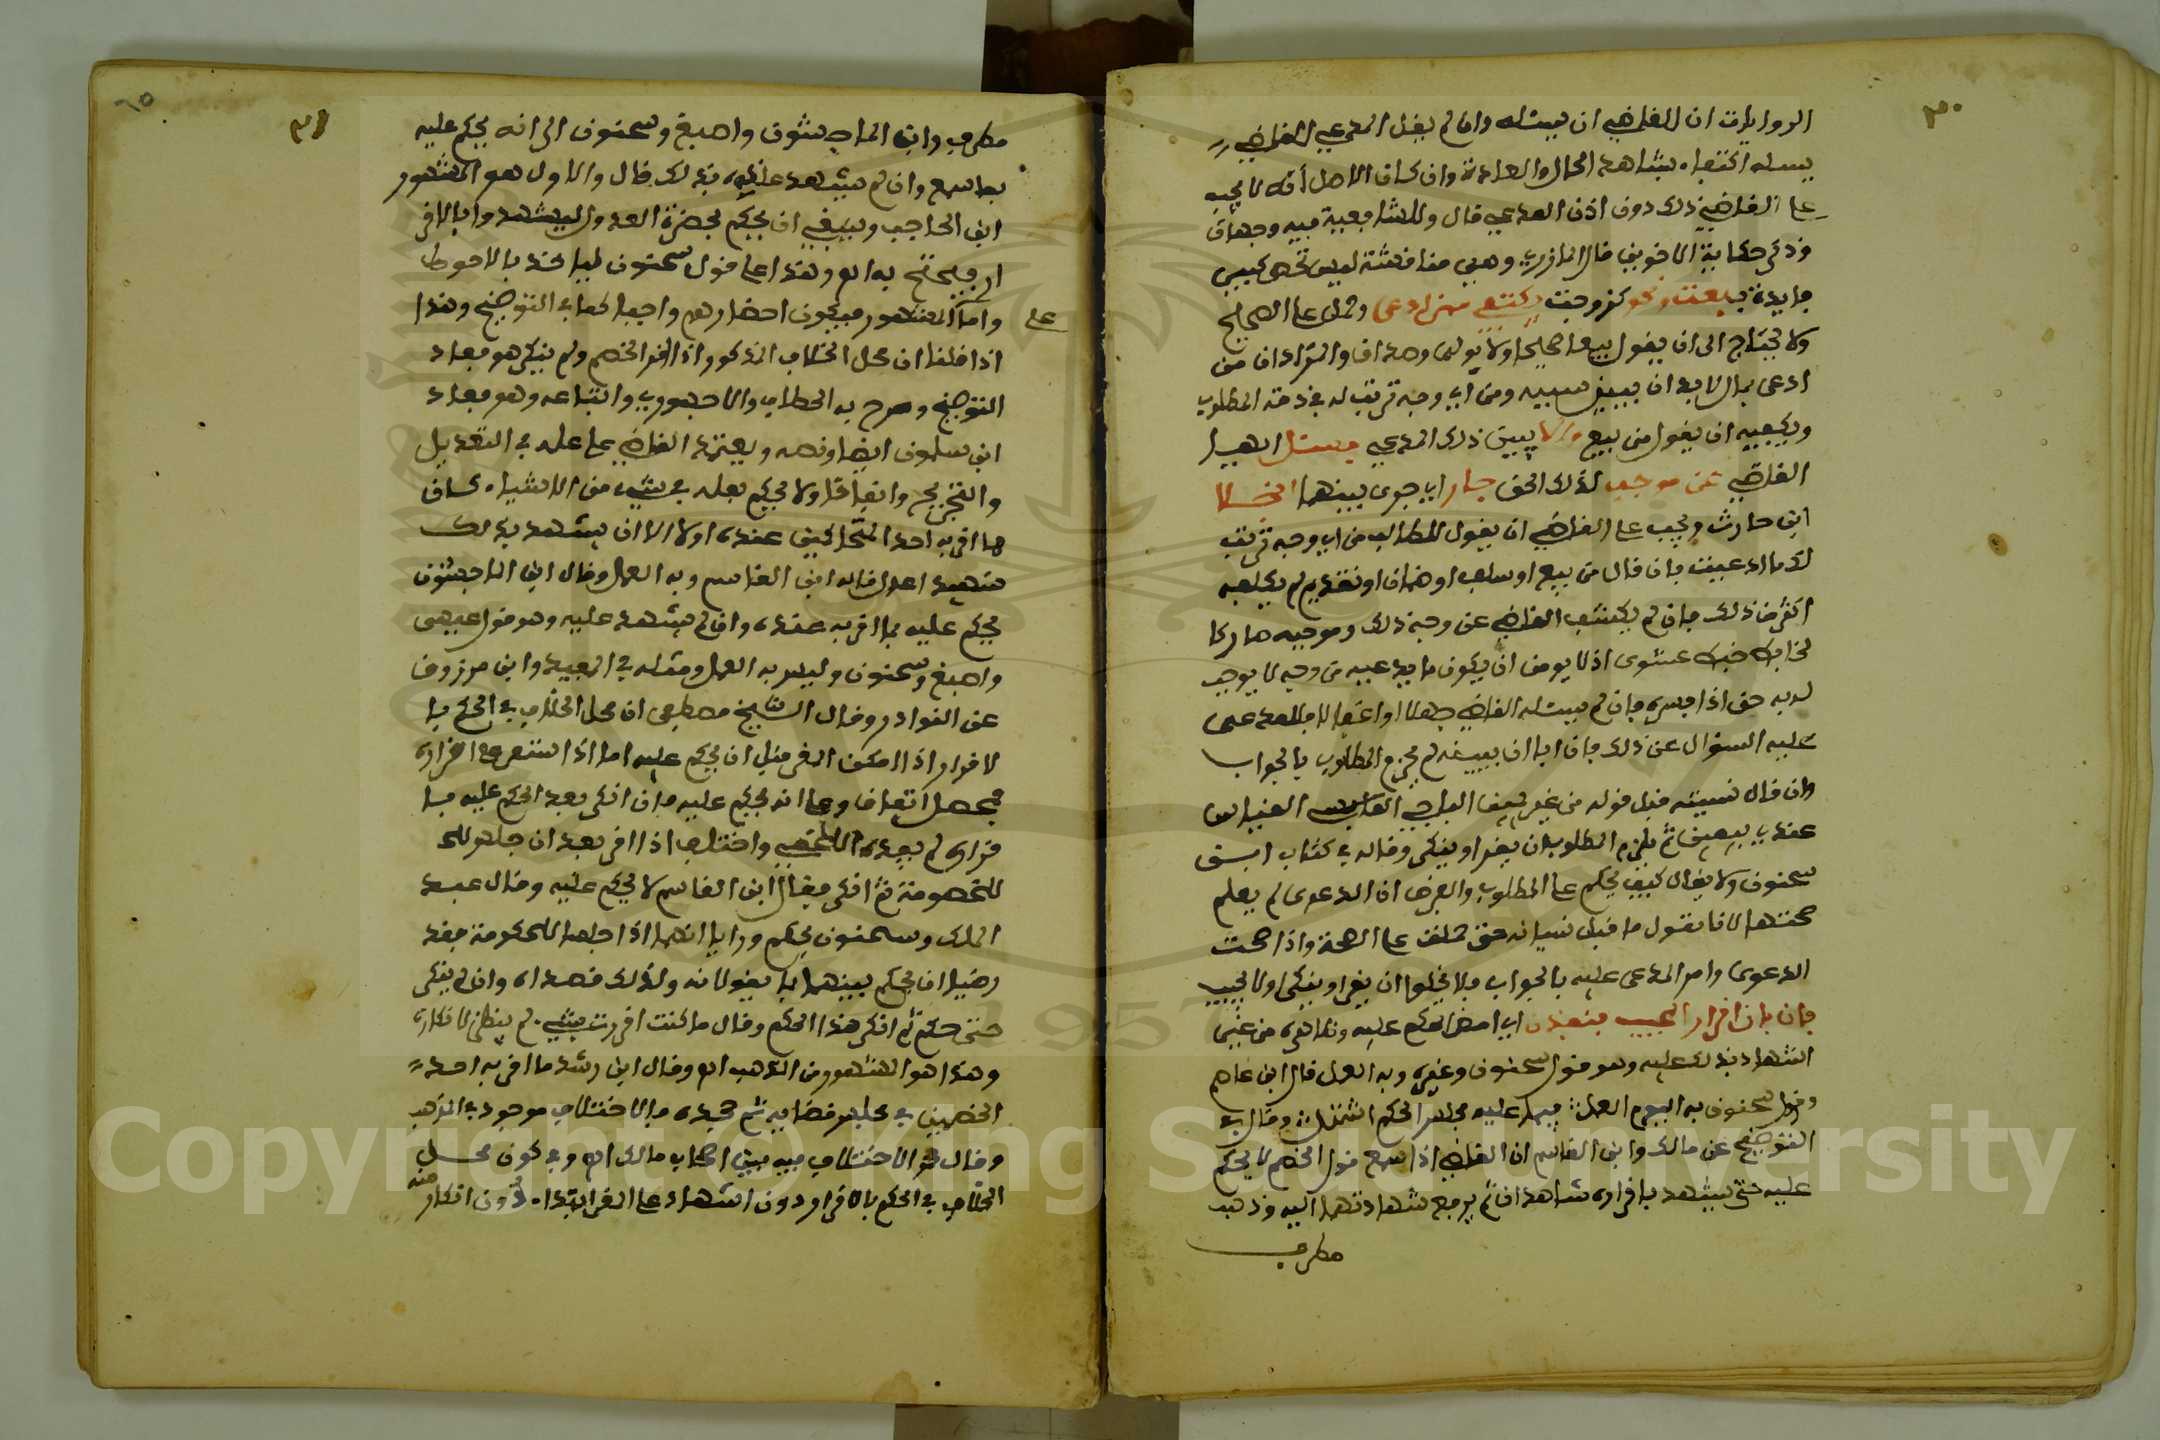 ٣٠
الروايات ان للقاضي ان يسئله وان لم يقل المدعي للقاضي
يسئله اكتفاء بشاهد الحال والعادة وان كان الاصل أنه لا يجب
على القاضي ذلك دون اذن المدعي قال وللشافعية فيه وجهان
وذكر حكاية الاخوين قال المازري وهي مناقشة ليس تحتها كبير
فايدة كبعت وتزوجت يكتفي من ادعى وحمل على الصحيح
ولا يحتاج الى ان يقول بيعا صحيحا ولا بولي وصداق والمراد ان من
ادعى بمال لا بد ان يبين سببه ومن اي وجه ترتب له في ذمة المطلوب
ويكفيه ان يقول من بيع والا يبين ذلك المدعي فيسئل
القاضي عن موجب لذلك الحق جار اي جرى بينهما
ابن حارث ويجب على القاضي ان يقول للطالب من اي وجه ترتب
لك ما ادعيت فان قال من بيع او سلف او ضمان او تعد لم يكلفه
اكثر من ذلك فان لم يكشف القاضي عن وجه ذلك وموجبه صار كا
لخابط خبط عشوى اذ لا يومن ان يكون ما يدعيه من وجه لا يوجب
له به حق اذا فسره فان لم يسئله القاضي جهلا او اغفالا فللمدعى
عليه السؤال عن ذلك فان ابا ان يبينه لم يجزم المطلوب بالجواب
وان قال نسيته قبل قوله من غير يمين الباجي القياس
عندي بيمين ثم يلزم المطلوب ان يقر او ينكر وقاله في كتاب ابن
سحنون ولا يقال كيف يحكم على المطلوب والفرض ان الدعوى لم يعلم
صحتها لانا نقول ما قبل نسيانه حتى حملت على الصحة واذا صحت
الدعوى وامر المدعى عليه بالجواب فلا يخلوا ان يقر او ينكر او لا يجيب
فان بان اقرار المجيب ينفذن اي امض الحكم عليه من غير
اشهاد بذلك عليه وهو قول سحنون وغيره وبه العمل قال ابن عاصم
وقول سحنون به اليوم العمل فيما عليه مجلس الحكم اشتمل وقال في
التوضيح عن مالك وابن القاسم ان القاضي اذا سمع قول الخصم لا يحكم
عليه حتى يشهد باقراره شاهدان ثم يرفع شهادتهما اليه وذهب
مطرف
٣١
٦٥
مطرف وابن الماجشون واصبغ وسحنون الى انه يحكم عليه
بما سمع وان لم يشهد عنده بذلك قال والاول هو المشهور
ابن الحاجب وينبغي ان يحكم بحضرة العدول ليشهدوا بالاقرار
فيحتج به اهـ وهذا على قول سحنون لياخذ بالاحوط
واما على المشهور فيكون احضارهم واجبا كما في التوضيح وهذا
اذا قلنا ان محل الخلاف المذكور اذا اقر الخصم ولم ينكر هو مفاد
التوضيح وصرح به الحطاب والاجهوري واتباعه وهو مفاد
ابن سلمون ايضا ونصه ويعتمد القاضي على علمه في التعديل
والتجريح واتفاقا ولا يحكم بعلمه في شيء من الاشياء كان
مما اقر به احد المتحاكمين عنده اولا الا ان يشهد بذلك
شهيدا عدل قاله ابن القاسم وبه العمل وقال ابن الماجشون
يحكم عليه بما اقر به عنده وان لم يشهد عليه وهو قول عيسى
واصبغ وسحنون وليس به العمل ومثله في المفيد وابن مرزوق
عن النوادر وقال الشيخ مصطفى ان محل الخلاف في الحكم با
لاقرار اذا انكر المقر قبل ان يحكم عليه اما اذا استمر على اقراره
فمحصل اتفاق وعلى انه يحكم عليه فان انكر بعد الحكم عليه با
قراره لم يفده واختلف اذا اقر بعد ان جلس
للخصومة ثم انكر فقال ابن القاسم لا يحكم عليه وقال عبد
الملك وسحنون يحكم ورايا انهما اذا جلسا للحكومة فقد
رضيا ان يحكم بينهما بما يقولانه ولذلك قصداه وان لم ينكر
حتى حكم ثم انكر هذا الحكم وقال ما كنت اقررت بشيء لم ينظر لانكاره
وهذا هو المشهور من المذهب اهـ وقال ابن رشد ما اقر به احد
الخصمين في مجلس قضايه ثم جحده فالاختلاف موجود في المذهب
وقال هو الاختلاف فيه بين اصحاب مالك اهـ وفي كون محل
الخلاف في الحكم بالاقرار دون اشهاد على المقر ابتداء دون انكار منه